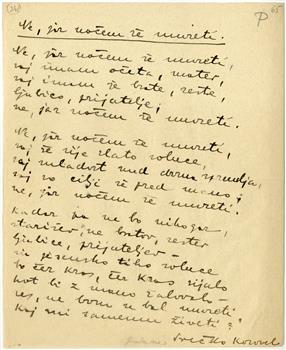 (24)
P 65
Ne, jaz nočem še umreti.
Ne, jaz nočem še umreti,
saj imam očeta, mater,
saj imam še brate, sestre,
ljubico, prijatelje;
ne, jaz nočem še umreti.
Ne, jaz nočem še umreti,
saj še sije zlato solnce,
saj mladost me drzna spremlja,
saj so cilji še pred mano;
ne, jaz nočem še umreti.
Kadar pa ne bo nikogar,
starišev, ne bratov, sester
ljubice, prijateljev –
in jesensko tiho solnce
bo čez Kras, čez Kras sijalo
kot bi z mano žalovalo –
ne bom se bal umreti
kaj mi samemu živeti?
Srečko Kosovel